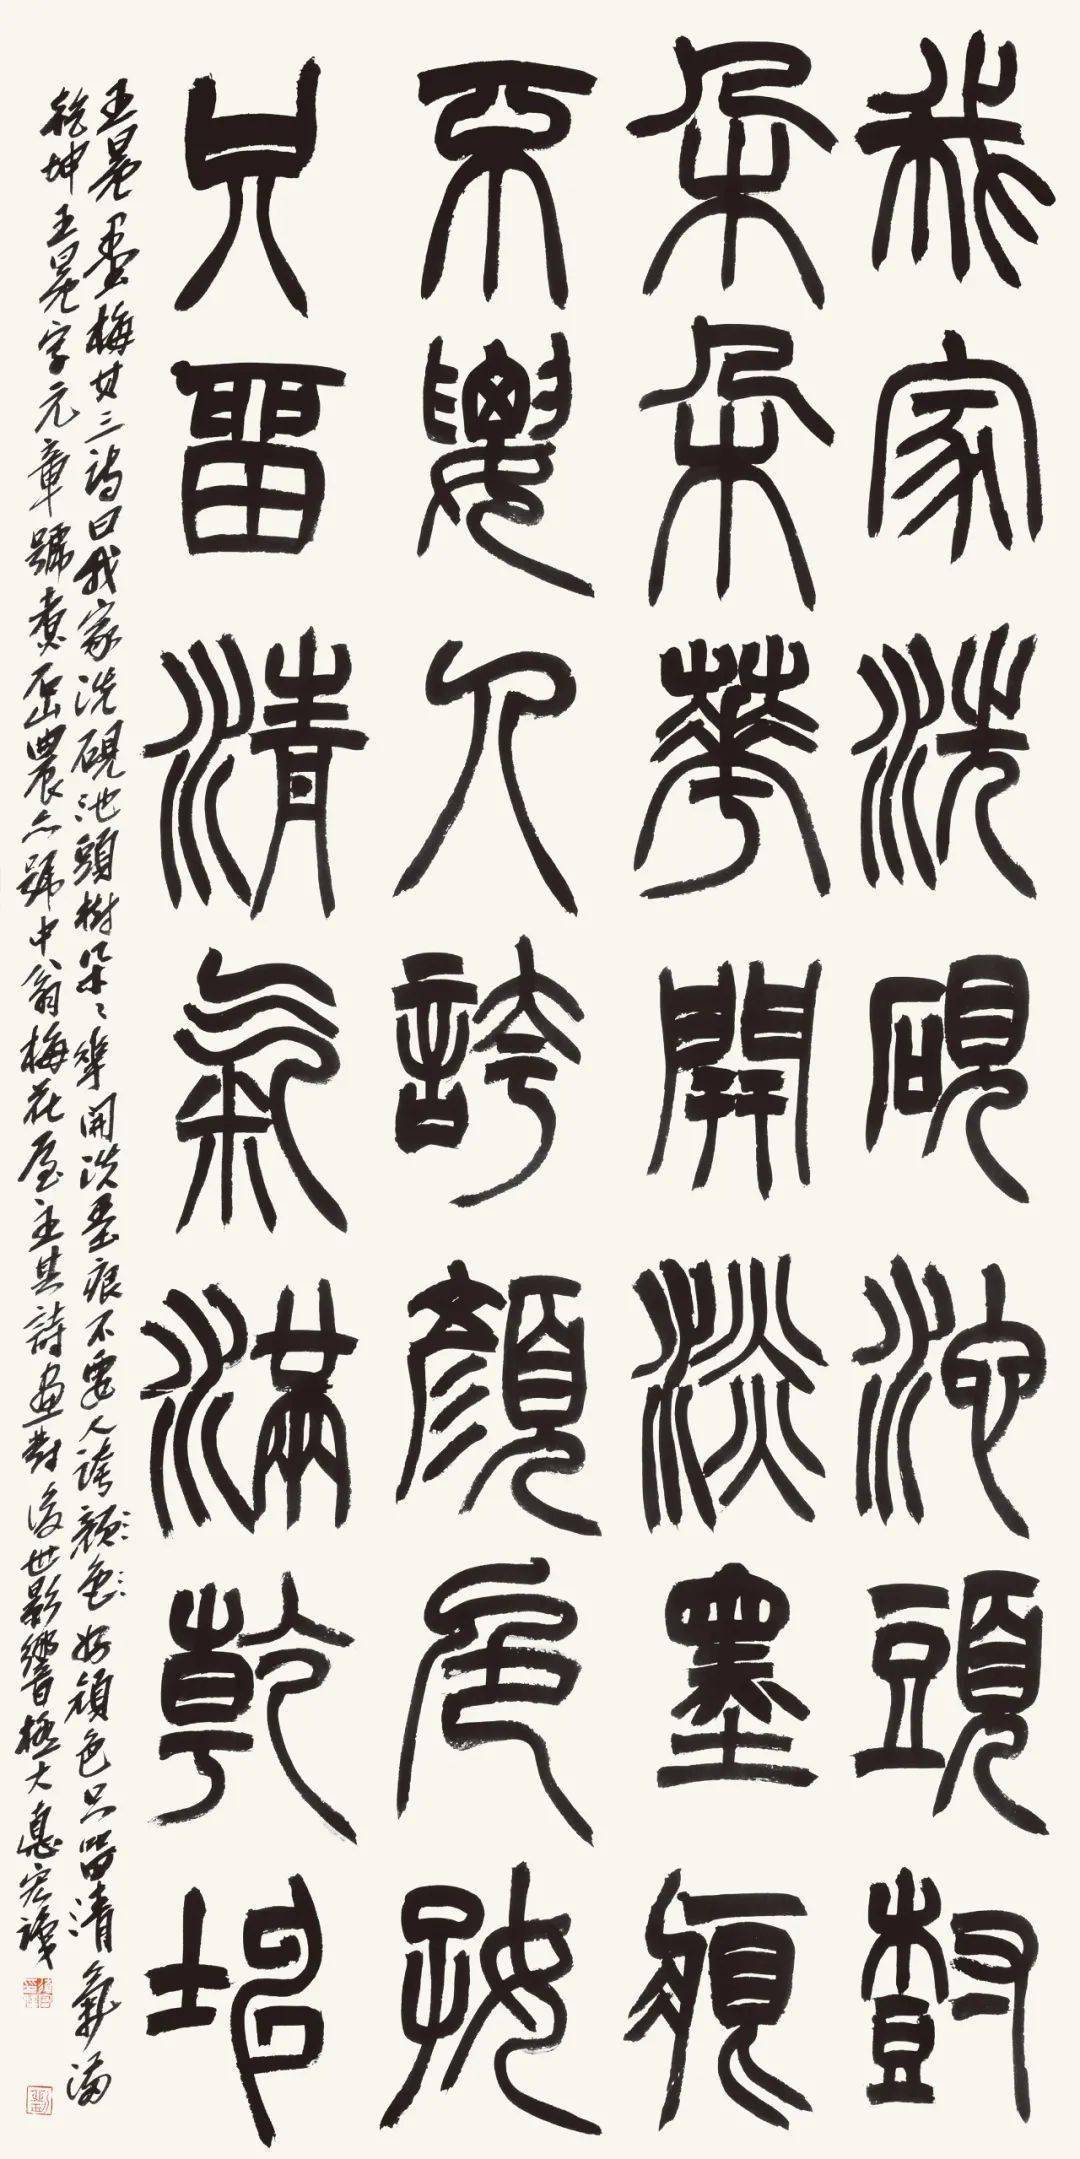 我家洗硯池頭樹
朵朵華開淡墨痕
不要人誇顏色好
只留清氣滿乾坤
王冕墨梅其三詩曰我家洗硯池頭樹朵〻華開淡墨痕不要人誇顏色好顏色只留清氣滿
乾坤王冕字元章號煮石山農亦號中翁梅花屋主其詩畫對後世影響極大